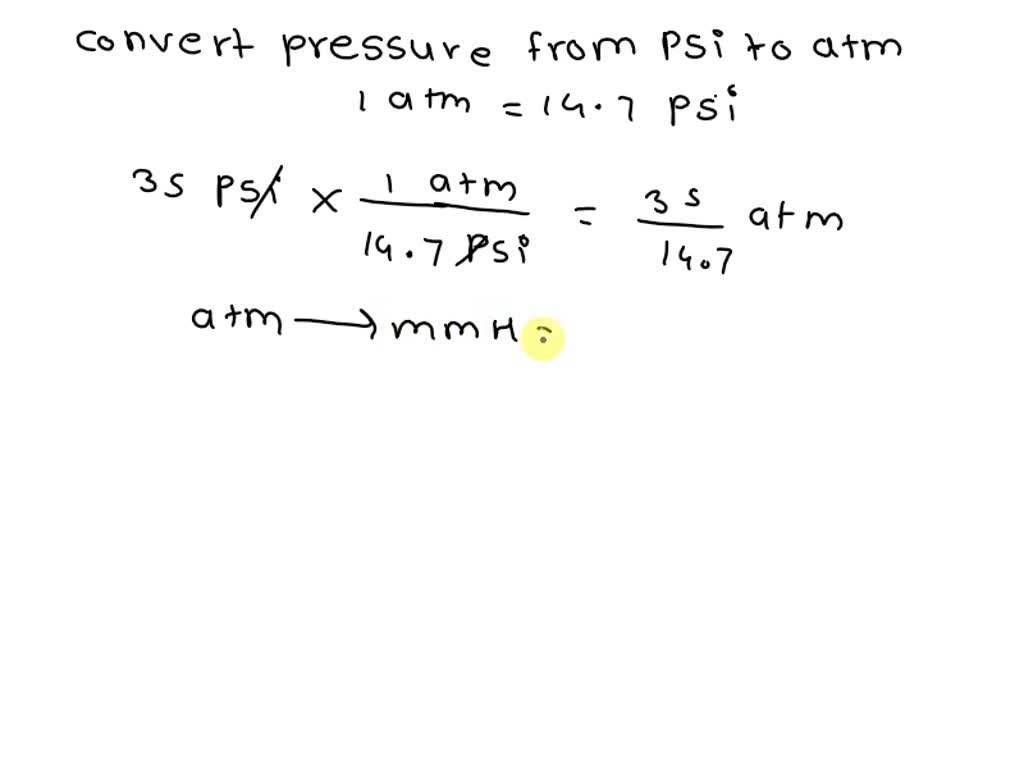 convert pressure from psi to atm
1 atm = 14.7 psi
35 psi × 1 atm / 14.7 psi = 35 / 14.7 atm
atm → mmH =